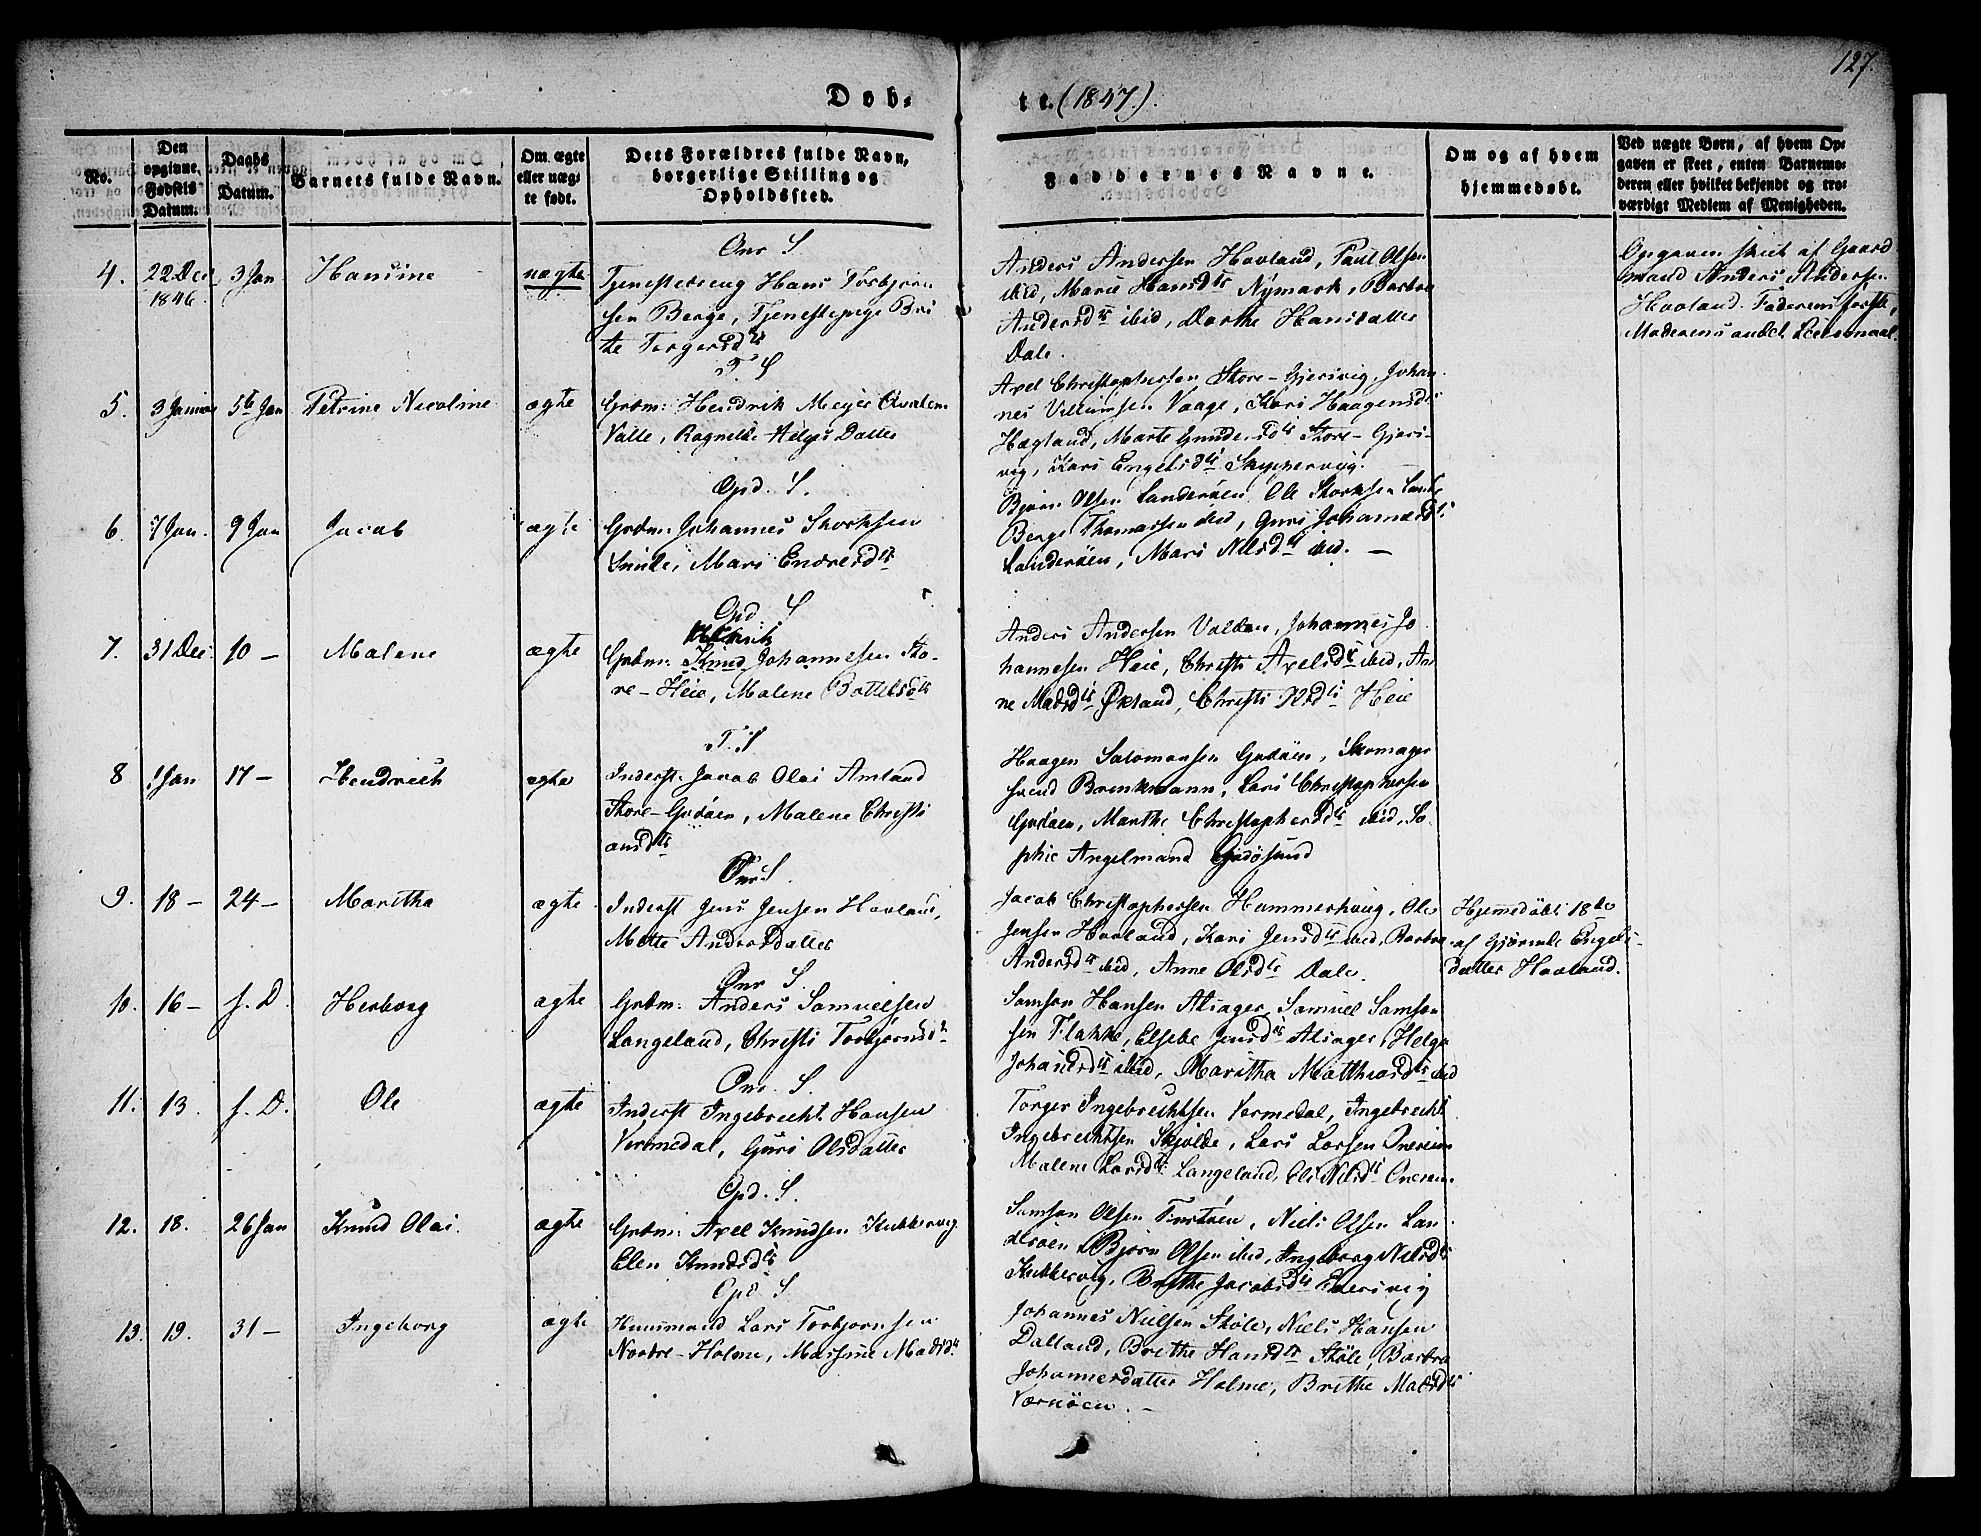 127.
Døb- te. (1847).
No.
Den opgivne Fødsels Datum.
Daabs Datum.
Barnets fulde Navn.
Om ægte eller uægte født.
Dets Forældres fulde Navn, borgerlige Stilling og Opholdssted.
Faddernes Navne.
Om og af hvem hjemmedøbt.
Ved uægte Børn, af hvem Opgaven er skeet, enten Barnemoderen eller hvilket bekjendt og troværdigt Medlem af Menigheden.
4. 22 Dec 1846. 3 Jan Hansine uægte
Onr S.
Tjenestedreng Hans Torbjørn
sen Berge, Tjenestepige Bri
te Torgersdtr
Anders Andersen Hovland, Paul Olsen
ibid, Marie Hansdtr Nymark, Barbra
Andersdtr ibid, Dorthe Hansdatter
Dale.
Opgaven skeet af Gaard
mand Anders Andersen
Hovland. Faderens første,
Moderens andet Leiermaal.
5. 3 Januar 5te Jan Petrine Nicoline ægte
T. S
Grdm: Hendrik Meyer
Valle, Ragnilde Helges Datter
Axel Christophersen Store-Gjersvig, Johan
nes Villumsen Vaage, Kari Haagensdtr
Hægland, Marte Gundersdtr Store-Gjers-
vig, Kari Engelsdtr Skippervig.
6. 7 Jan. 9 Jan Jacob ægte
Opd. S.
Grdm: Johannes Storksen
Smile, Mari Endresdtr
Bjørn Olsen Landerøen, Ole Storksen
Berge Thomassen ibid, Guri Johannesdtr
Landerøen, Mari Nilsdtr ibid. —
7. 31 Dec. 10 — Malene ægte
Opd. S
Grdm: Knud Johannesen Sto-
re-Heie, Malene Bottelsdtr
Anders Andersen Valden, Johannes Jo
hannesen Heie, Christi Axelsdtr ibid, An
ne Madsdtr Økland, Christi Olsdtr Heie
8 1 Jan 17 — Hendrich ægte
T. S
Inderst. Jacob Olai Amland
Store-Godøen, Malene Christi
ansdtr
Haagen Salomonsen Godøen, Skomager
svend Brinkmann, Lars Christophersen
Godøen, Marthe Christophersdtr ibid, So
phie Angelmand Godøsund
9. 18 — 24 — Maritha ægte
Onr. S.
Inderst Jens Jensen Hovland,
Mette Andersdatter
Jacob Christophersen Hammerhaug, Ole
Jensen Hovland, Kari Jensdtr ibid, Barbra
Andersdtr ibid, Anne Olsdtr Dale.
Hjemedøbt 18de
af Gjørnile Engels-
datter Hovland.
10. 16 — f. D. Herborg ægte
Onr S.
Grdm: Anders Samuelsen
Langeland, Christi Torbjørnsdtr
Samson Hansen Alsager, Samuel Samson
sen Flakke, Elsebe Jensdtr Alsager, Helga
Johansdtr ibid, Maritha Matthiasdtr ibid
11. 13. f. D. Ole ægte
Onr. S.
Inderst Ingebrecht Hansen
Vermedal, Guri Olsdatter
Torger Ingebrechtsen Vermedal, Ingebrecht
Ingebrechtsen Skjolde, Lars Larsen Onereim
Malene Larsdtr Langeland, Eli Nilsdtr Onereim
12. 18. 26 Jan Knud Olai. ægte
Opd. S.
Grdm: Axel Knudsen Kubbervig
Elen Knudsdtr
Samson Olsen, Niels Olsen Lan
derøen, Bjørn Olsen ibid, Ingeborg Nilsdtr
Kubbervig, Brithe Jacobsdtr
13. 19. 31 — Ingeborg ægte
Opd S.
Huusmand Lars Torbjørnsen
Nordre-Holme, Massine Madsdtr
Johannes Nielsen Støle, Niels Hansen
Dalland, Brithe Hansdtr Støle, Barbra
Johannesdatter Holme, Brithe Madsdtr
Værnøen. —